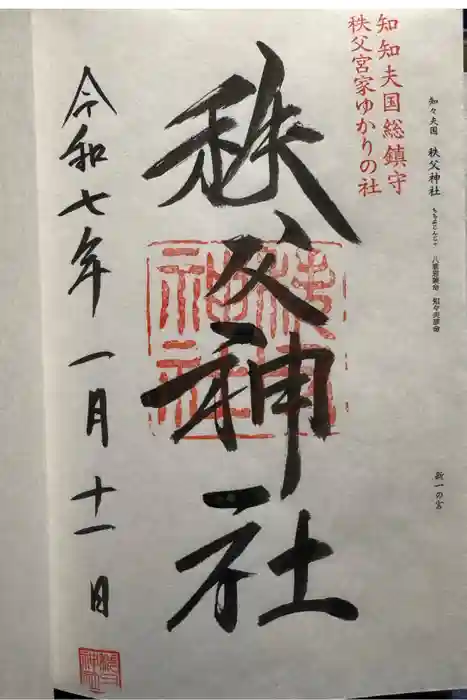 知々夫国 秩父神社 ちちぶじんじゃ 八意思兼命 知々夫彦命
新一の宮
知知夫国総鎮守
秩父宮家ゆかりの社
秩父神社
秩父神社
令和七年 一月 十一日
秩父神社